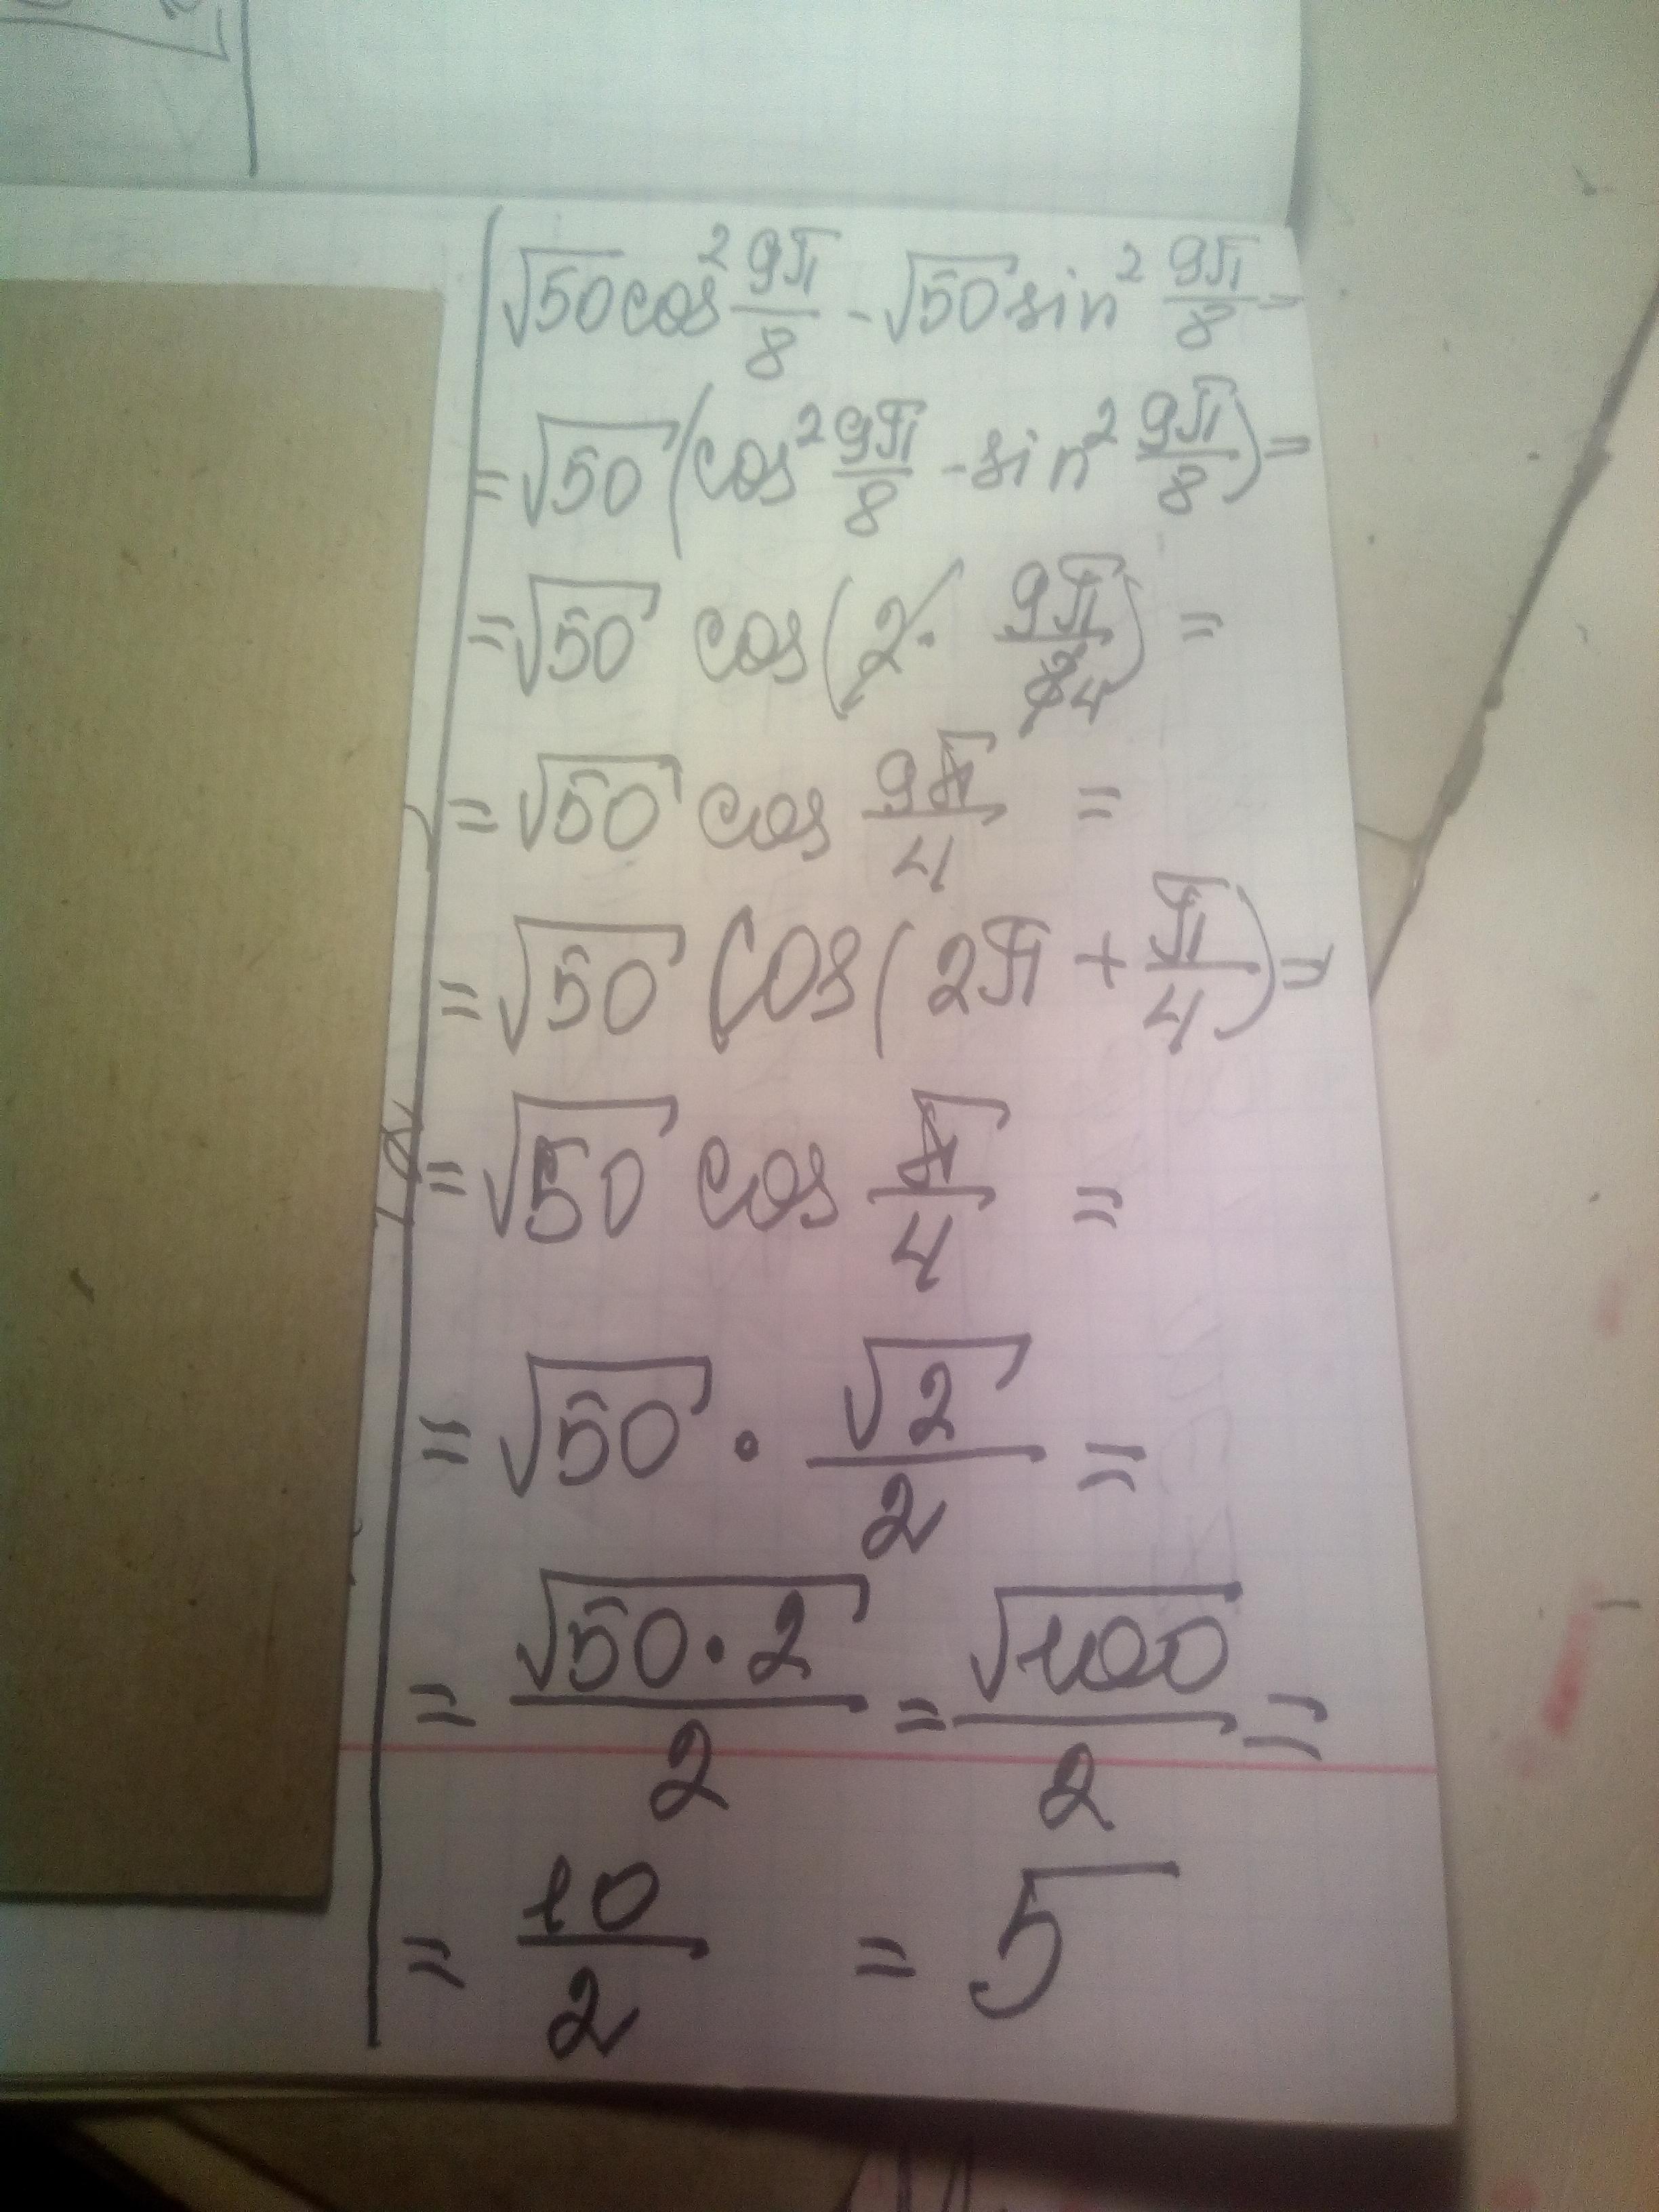 √50 cos² 9π/8 - √50 sin² 9π/8 =
= √50 (cos² 9π/8 - sin² 9π/8) =
= √50 cos(2 · 9π/8 4) =
= √50 cos 9π/4 =
= √50 cos(2π + π/4) =
= √50 cos π/4 =
= √50 · √2/2 =
= √50·2/2 = √100/2 =
= 10/2 = 5